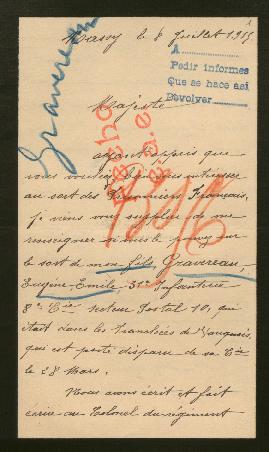 1
Massy le 8 Juillet 1915
A
Pedir informes
Que se hace asi
Devolver
Gravereau
Majesté
ayant appris que
vous vouliez bien vous intéresser
au sort des Prisonniers Français,
je viens vous supplier de me
renseigner si vous le pouvez sur
le sort de mon fils, Gravereau,
Eugène-Emile, 31e Infanterie
8e Cie Secteur Postal 10, qui
était dans les tranchées de Vauquois,
qui est porté disparu de sa Cie
le 28 Mars.
Nous avons écrit et fait
écrire au Colonel du régiment